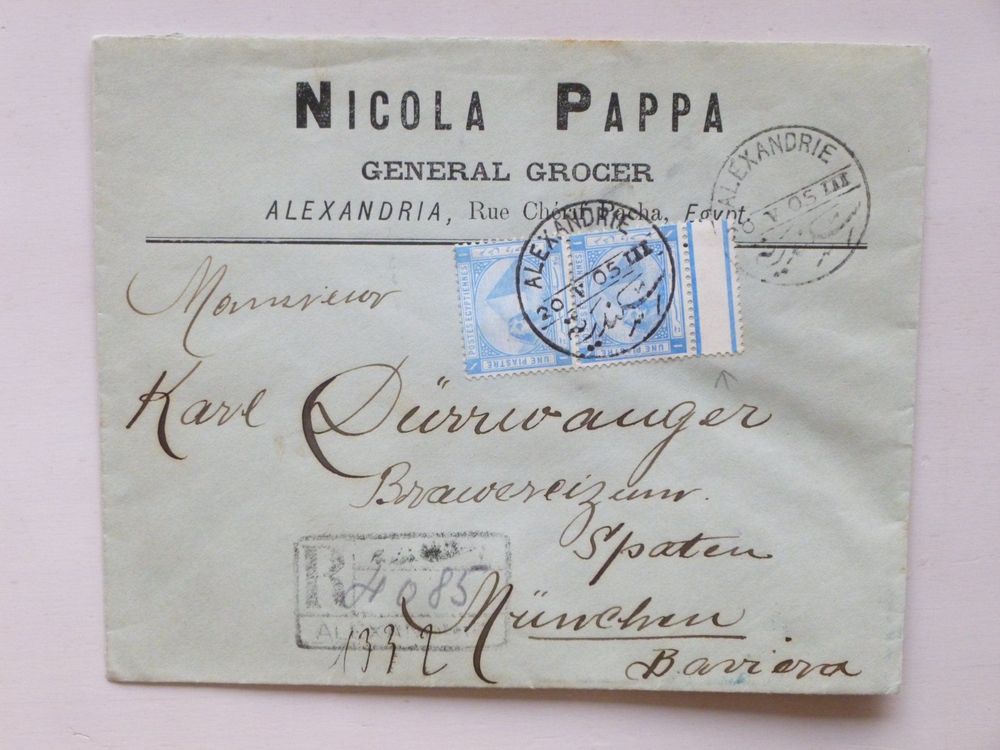 NICOLA PAPPA
GENERAL GROCER
ALEXANDRIA, Rue Chérif Pacha, Egypt.
ALEXANDRIE
20 V 05 III
ALEXANDRIE
20 V 05 III
POSTES EGYPTIENNES
UNE PIASTRE
UNE PIASTRE
Monsieur
Karl Dürrwanger
Brauereizum
Spaten
München
Baviera
R
4085
ALEXANDRIE
1332